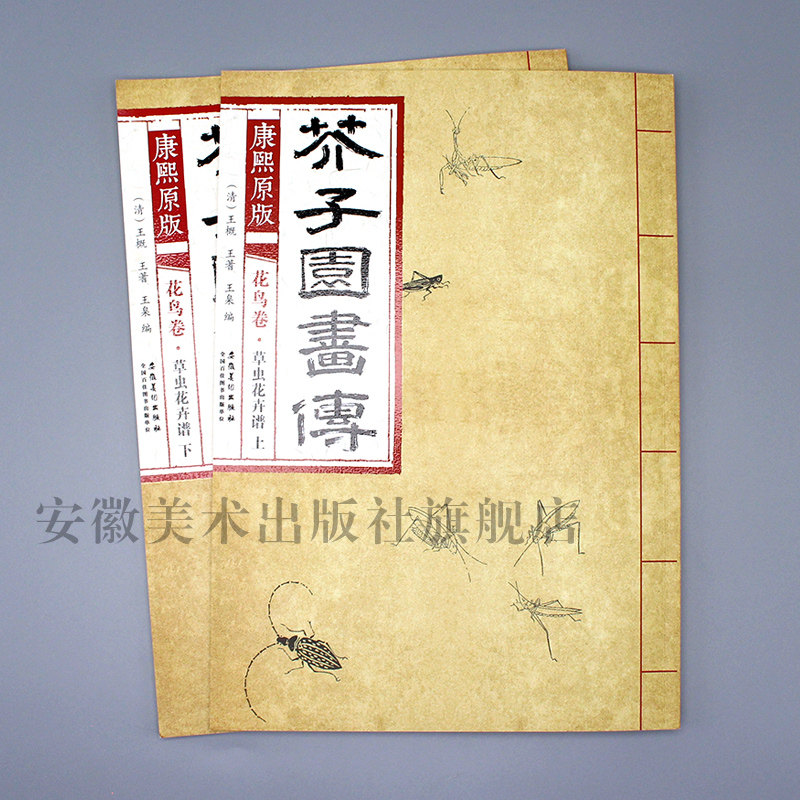 芥子園畫傳
康熙原版
(清)王概 王蓍 王臬 编
花鸟卷·草虫花卉谱 上
安徽美术出版社
全国百佳图书出版单位
康熙原版
(清)王概 王蓍 王臬 编
花鸟卷·草虫花卉谱 下
安徽美术出版社
全国百佳图书出版单位
安徽美术出版社旗舰店